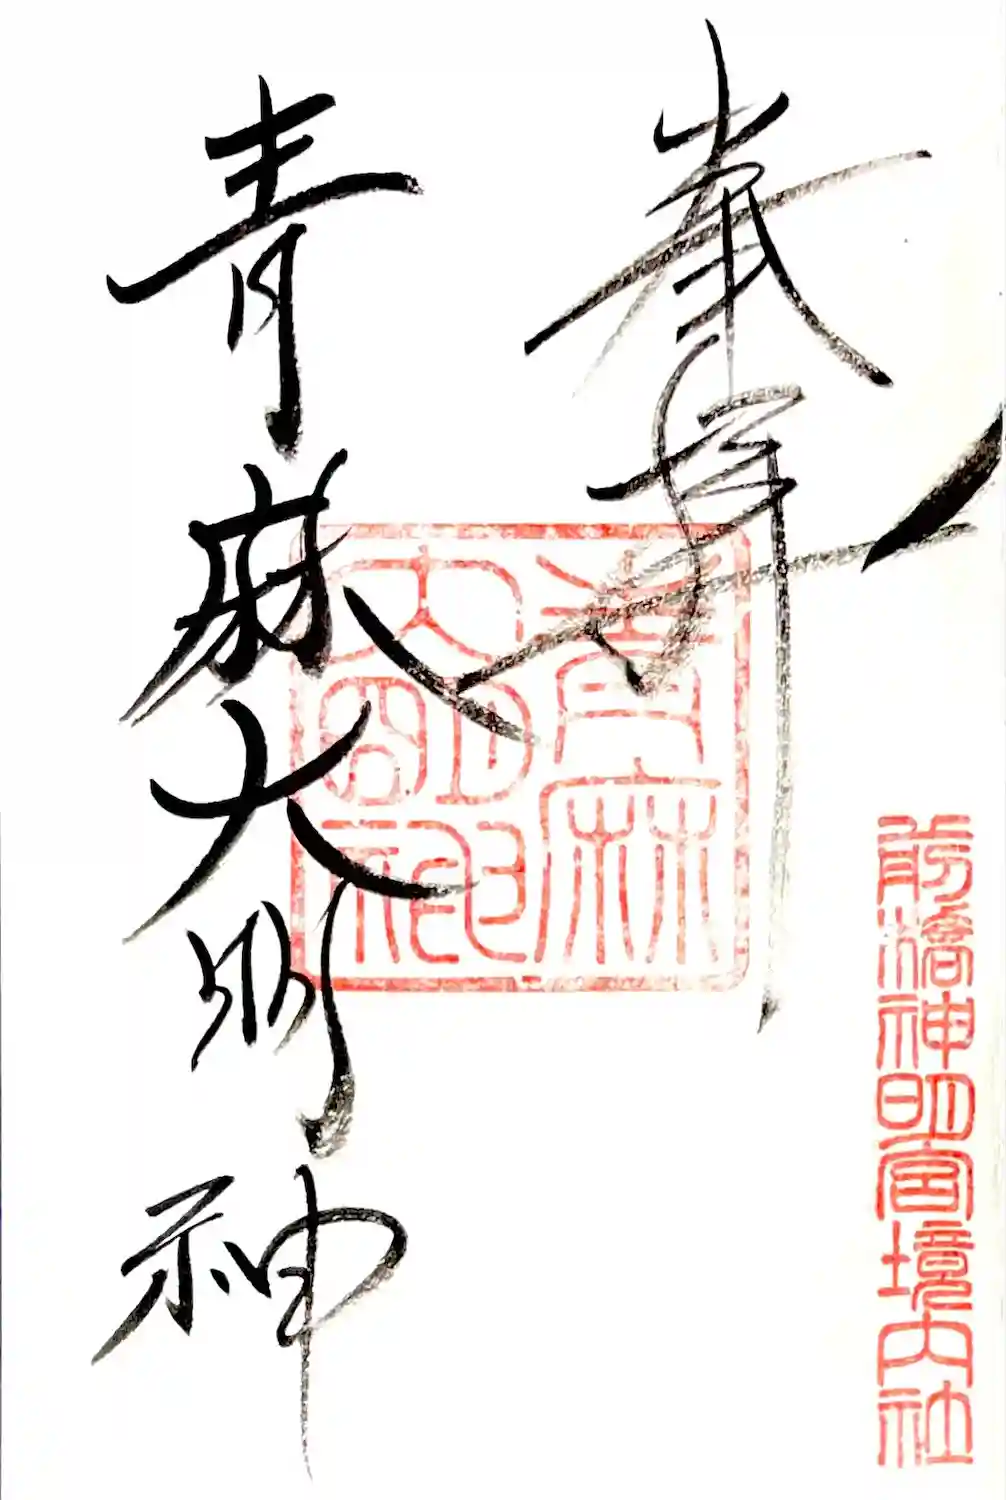 奉拝
前橋神明宮境内社
青麻大明神
青麻
大明神